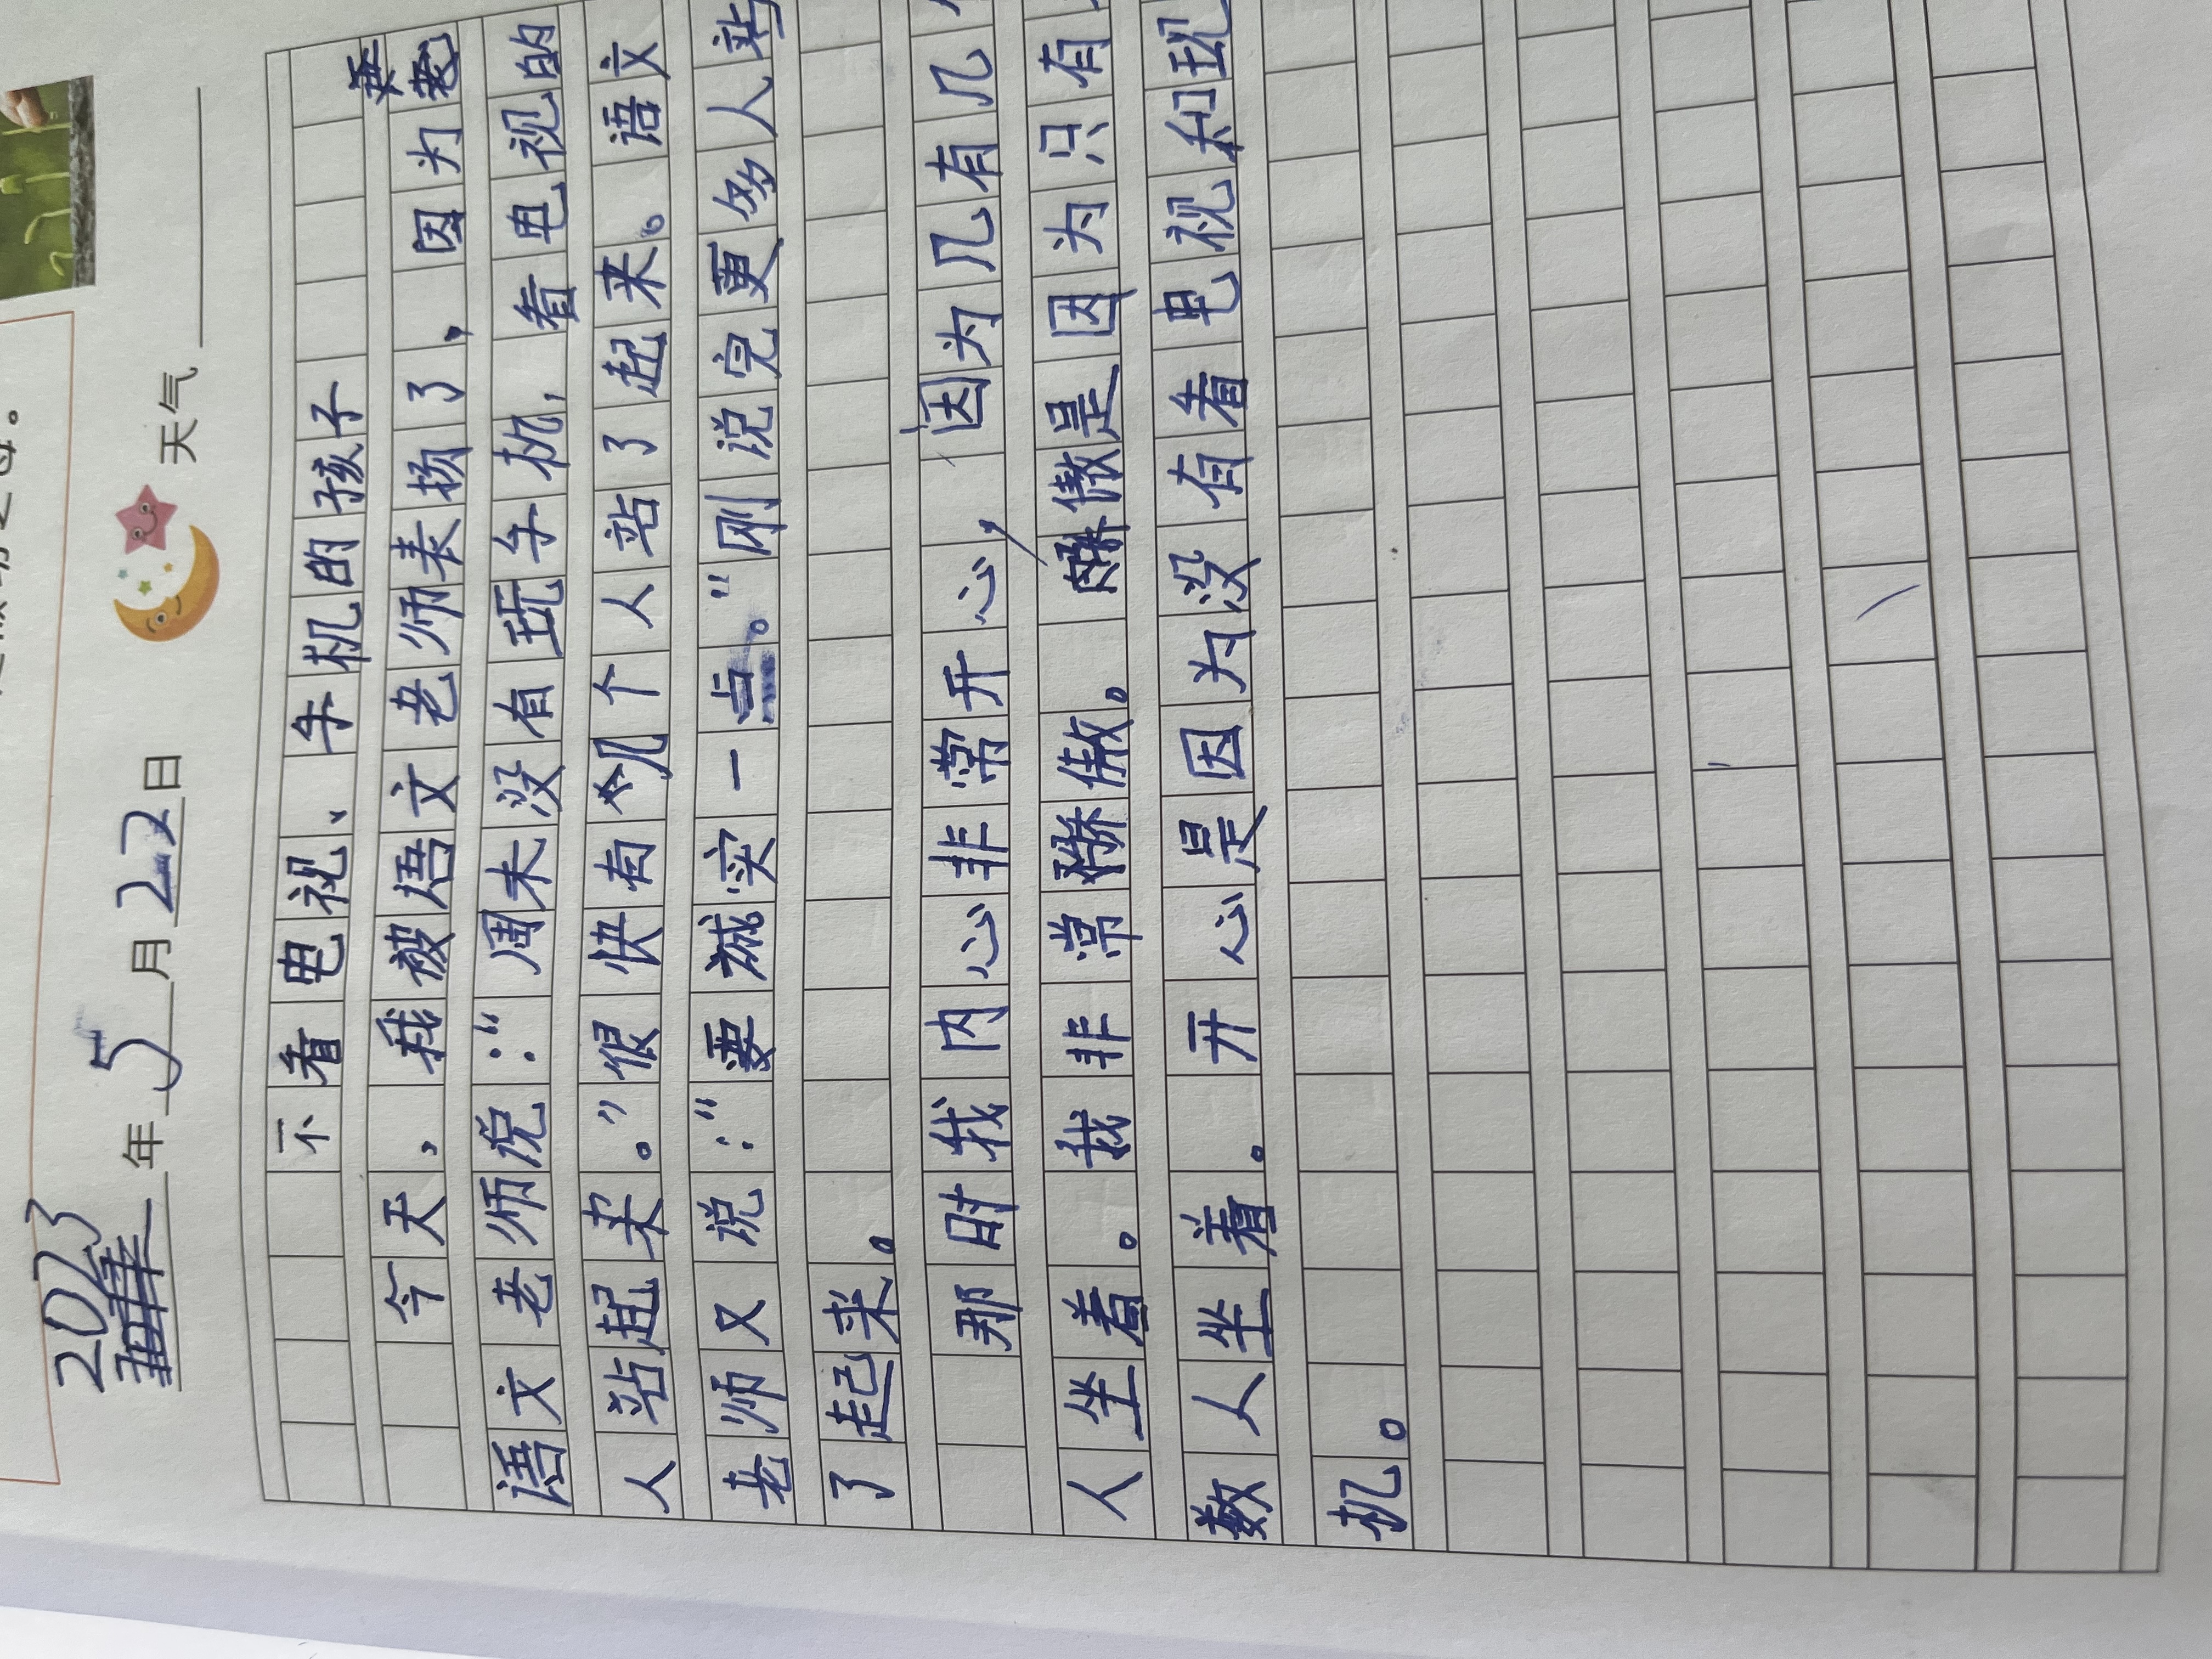 2023年5月22日 天气
不看电视、手机的孩子
今天,我被语文老师表扬了,因为
语文老师说:“周末没有玩手机,看电视的
人站起来。”很快有几个人站了起来。语文
老师又说:“要诚实一点。”刚说完更多人站
了起来。
那时我内心非常开心,因为几有几
人坐着。我非常骄傲。骄傲是因为只有
数人坐着。开心是因为没有看电视和玩
机。